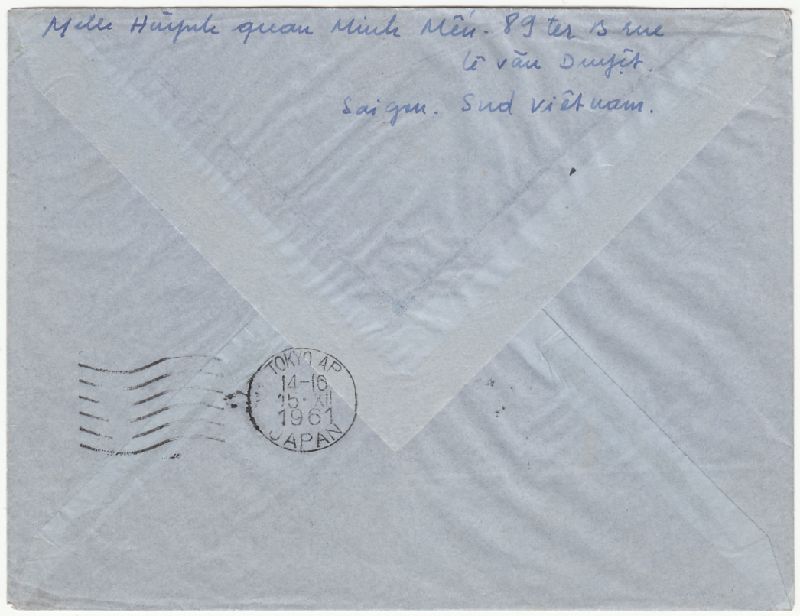 Melle Huỳnh quan Minh Mẩn. 89 ter B rue
Lê văn Duyệt.
Saigon. Sud Viêtnam.
TOKYO AP
14-16
15·XII
1961
JAPAN